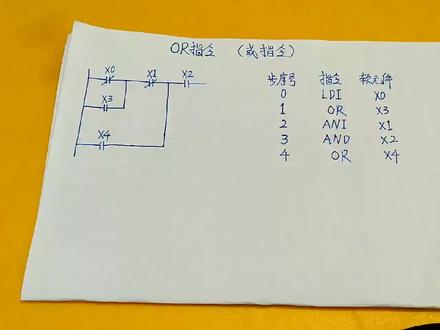 OR指令 (或指令)
X0 X1 X2
X3
X4
步序号 指令 软元件
0 LDI X0
1 OR X3
2 ANI X1
3 AND X2
4 OR X4